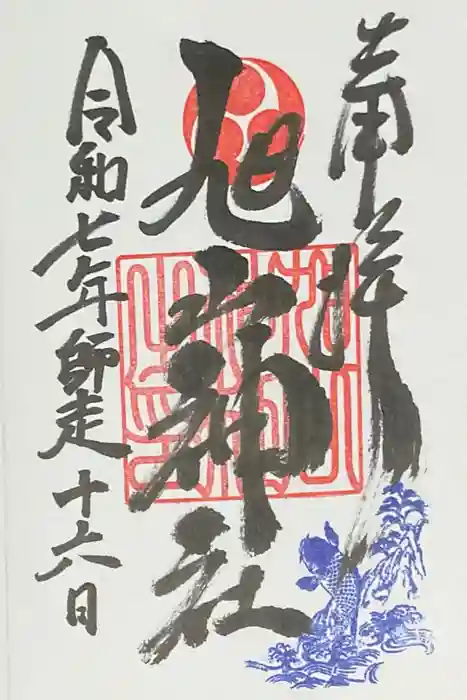 奉拝
旭山神社
令和七年師走十六日